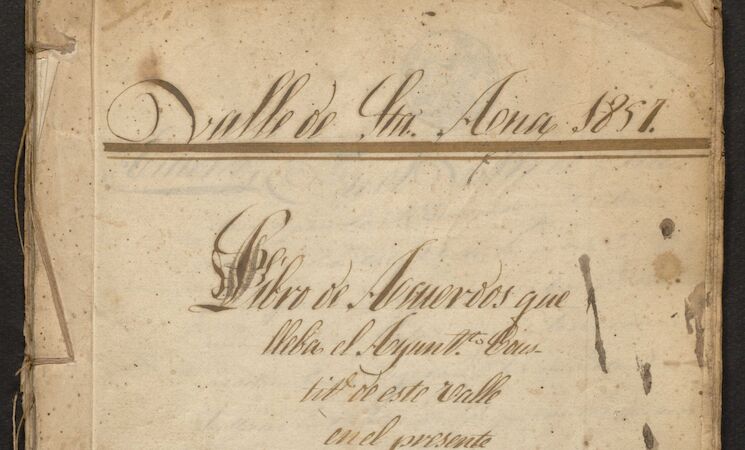 Valle de Sta. Rena 1857.
Libro de Acuerdos que
lleba el Ayuntto. Cons-
titl. de este valle
en el presente